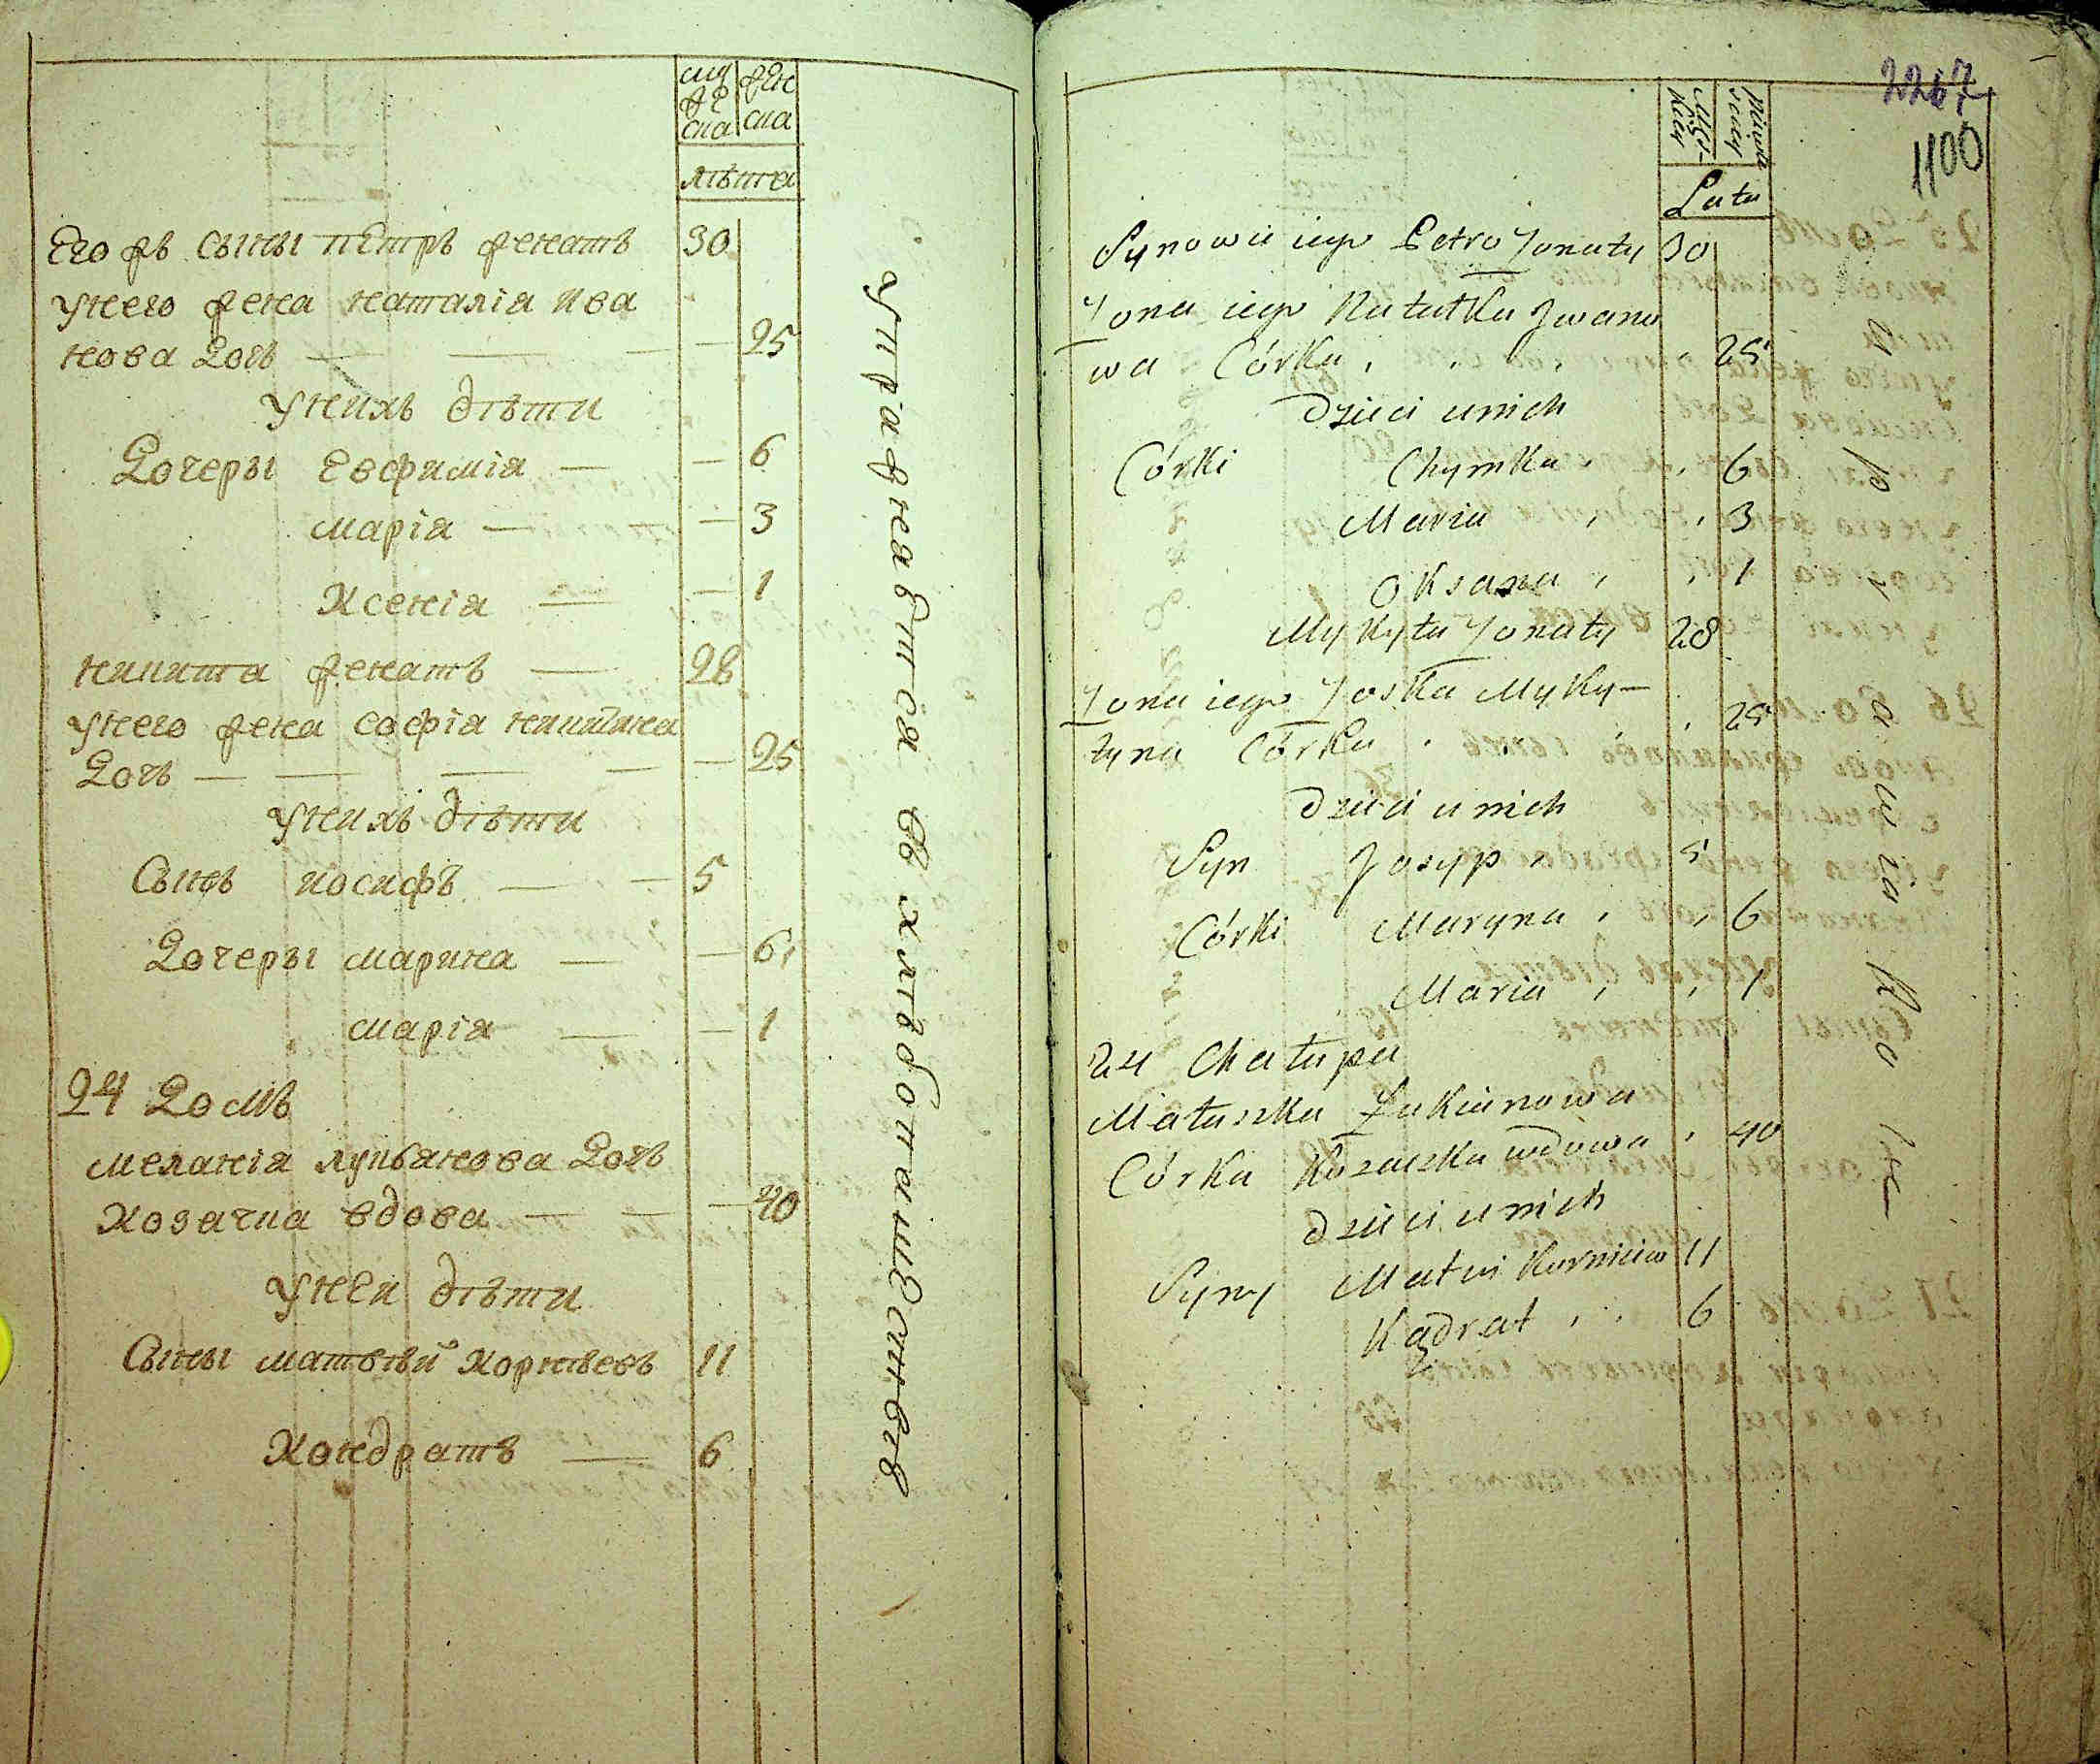 муж
же
ска
жен
ска
лѣта
Его жъ сыны Петръ женатъ 30
у него жена Наталія Ива
нова дочь — — — — 25
у нихъ дѣти
Дочеры Евфимія — — 6
Марія — — 3
Ксенія — — 1
Никита женатъ — 28
у него жена Софія Никитина
дочь — — — — — 25
у нихъ дѣти
Сынъ Иосифъ — — 5
Дочеры Марина — — 6
Марія — — 1
24 домъ
Меланія Лукьянова дочь
козачка вдова — — — 40
у неи дѣти
Сыны Матвѣй Корнѣевъ 11
Кондратъ — 6
упражняются въ хлѣбопашествѣ
2267
1100
Męs-
kiey
Lata
Synowie iego Petro Żonaty 30
Żona iego Natałka Iwano
wa Córka , . , , 25
Dzieci u nich
Córki Chymka , , 6
Maria , , 3
Oksana , , 1
Mykyta Żonaty 28
Żona iego Zoska Myky-
tyna Córka , , , 25
Dzieci u nich
Syn Josyp , 5
Córki Maryna , , 6
Maria , , 1
24 Chałupa
Małaszka Łukianowa
Córka Kozaczka wdowa , 40
Dzieci u nich
Syny Matwi Kornieiw 11
Kądrat , , 6